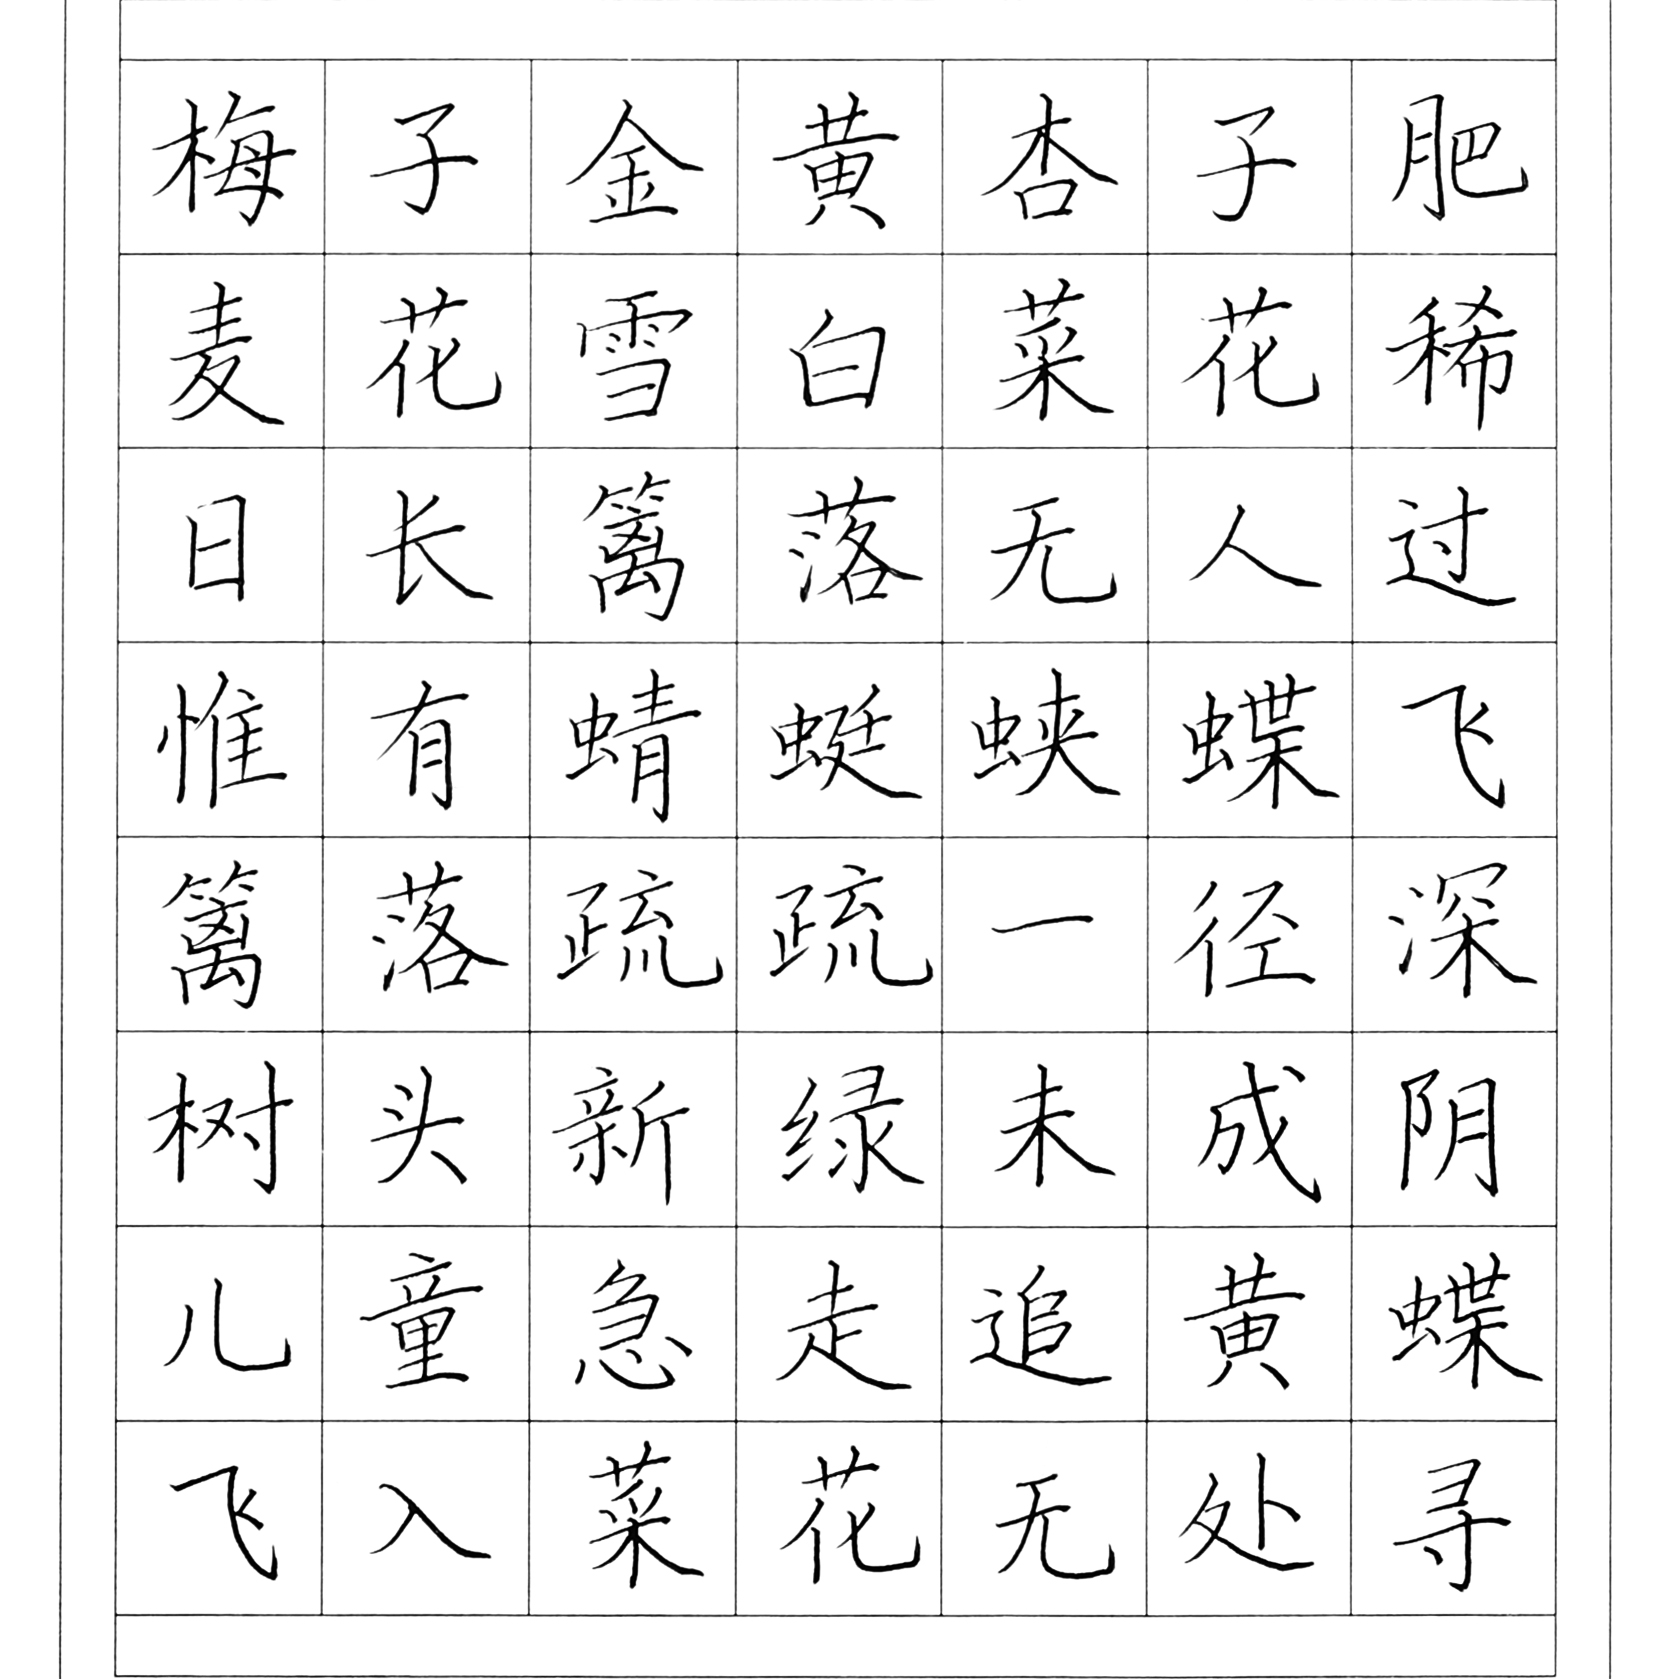 梅子金黄杏子肥
麦花雪白菜花稀
日长篱落无人过
惟有蜻蜓蛱蝶飞
篱落疏疏一径深
树头新绿未成阴
儿童急走追黄蝶
飞入菜花无处寻